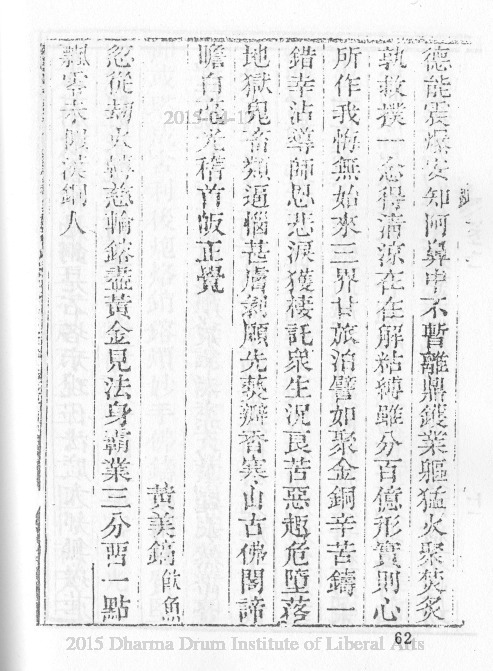 德能震爆安知阿鼻中不暫離鼎鑊業軀猛火聚焚炙
孰救撲一念得淸涼在在解結縛雖分百億形實則心
所作我悔無始來三界甘旅泊譬如聚金銅辛苦鑄一
錯幸沾導師恩悲淚獲棲託衆生況良苦惡趣危墮落
地獄鬼畜類逼惱甚膚剥願先爇瓣香寒山古佛閣諦
瞻白毫光稽首皈正覺
黄美鎬飮魚
忽從劫火轉慈輪鎔盡黃金見法身霸業三分曹一點
飄零未假漢銅人
2015-04-17
2015 Dharma Drum Institute of Liberal Arts
62